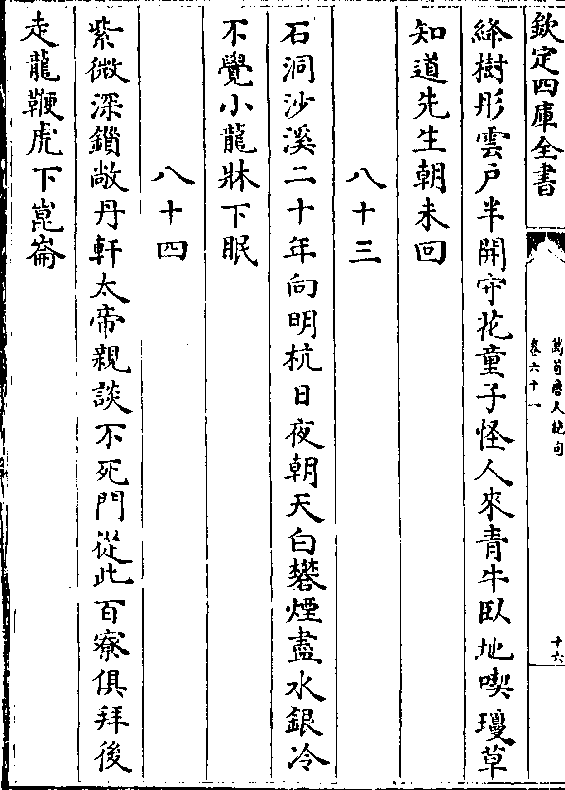 欽定四庫全書
萬首唐人絶句
卷六十一
十六
絳樹彤雲戸半開守花童子怪人來青牛臥地喫瓊草
知道先生朝未回
八十三
石洞沙溪二十年向明杭日夜朝天白礬煙盡水銀冷
不覺小龍牀下眠
八十四
紫微深鎖敞丹軒太帝親談不死門從此百寮俱拜後
走龍鞭虎下崑崙